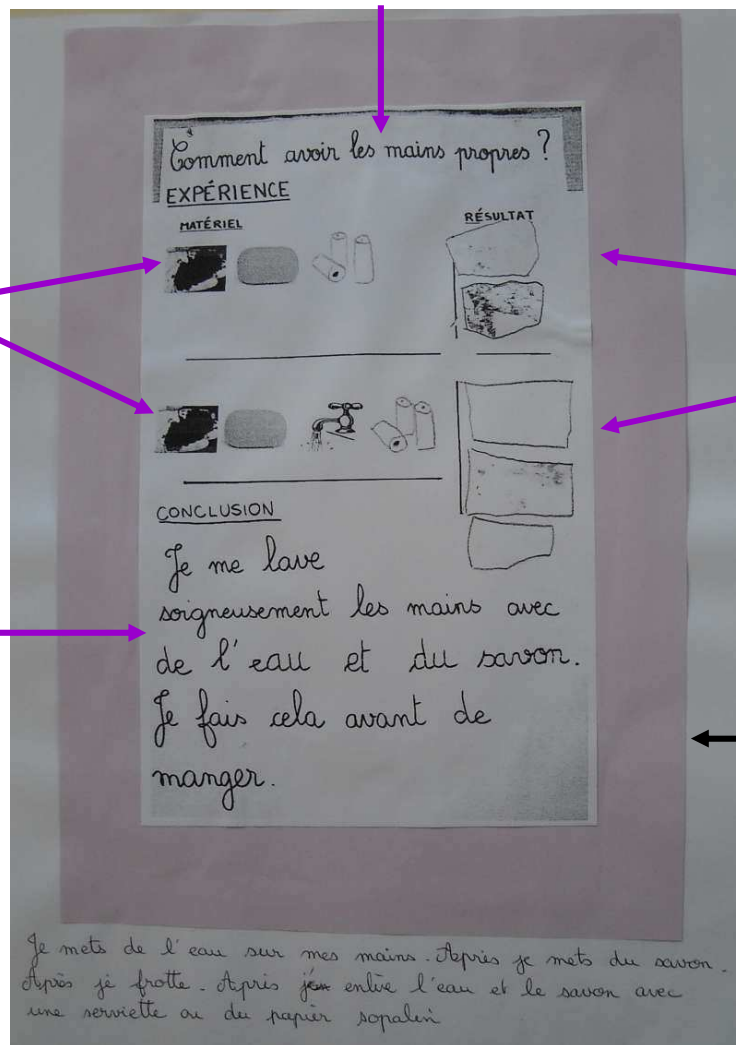 Comment avoir les mains propres ?
EXPÉRIENCE
MATÉRIEL
RÉSULTAT
CONCLUSION
Je me lave
soigneusement les mains avec
de l'eau et du savon.
Je fais cela avant de
manger.
Je mets de l'eau sur mes mains. Après je mets du savon.
Après je frotte. Après enlève l'eau et le savon avec
une serviette ou du papier sopalin